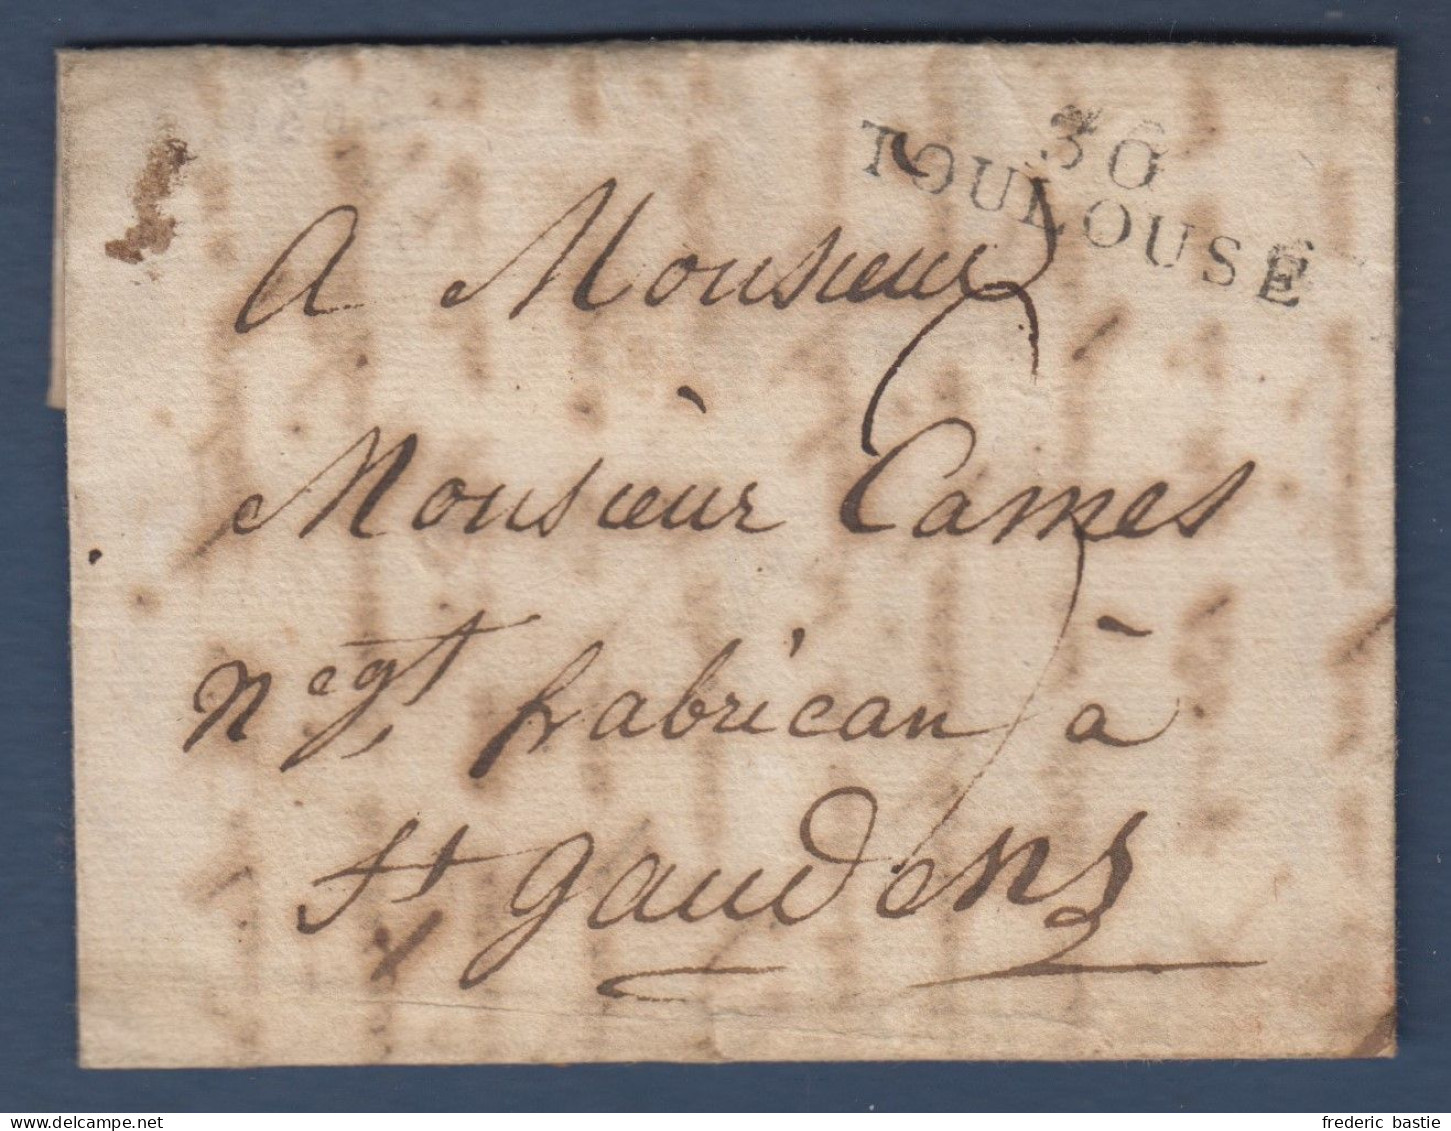 30
TOULOUSE
A Monsieur
Monsieur Cames
Negt. fabrican à
St gaudens
www.delcampe.net
frederic bastie